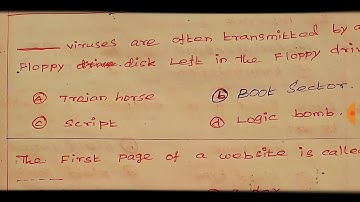 ____ viruses are often transmitted by a
Floppy disk Left in the Floppy driv
ⓐ Trojan horse ⓑ Boot Sector.
ⓒ Script ⓓ Logic bomb.
The First page of a website is calle